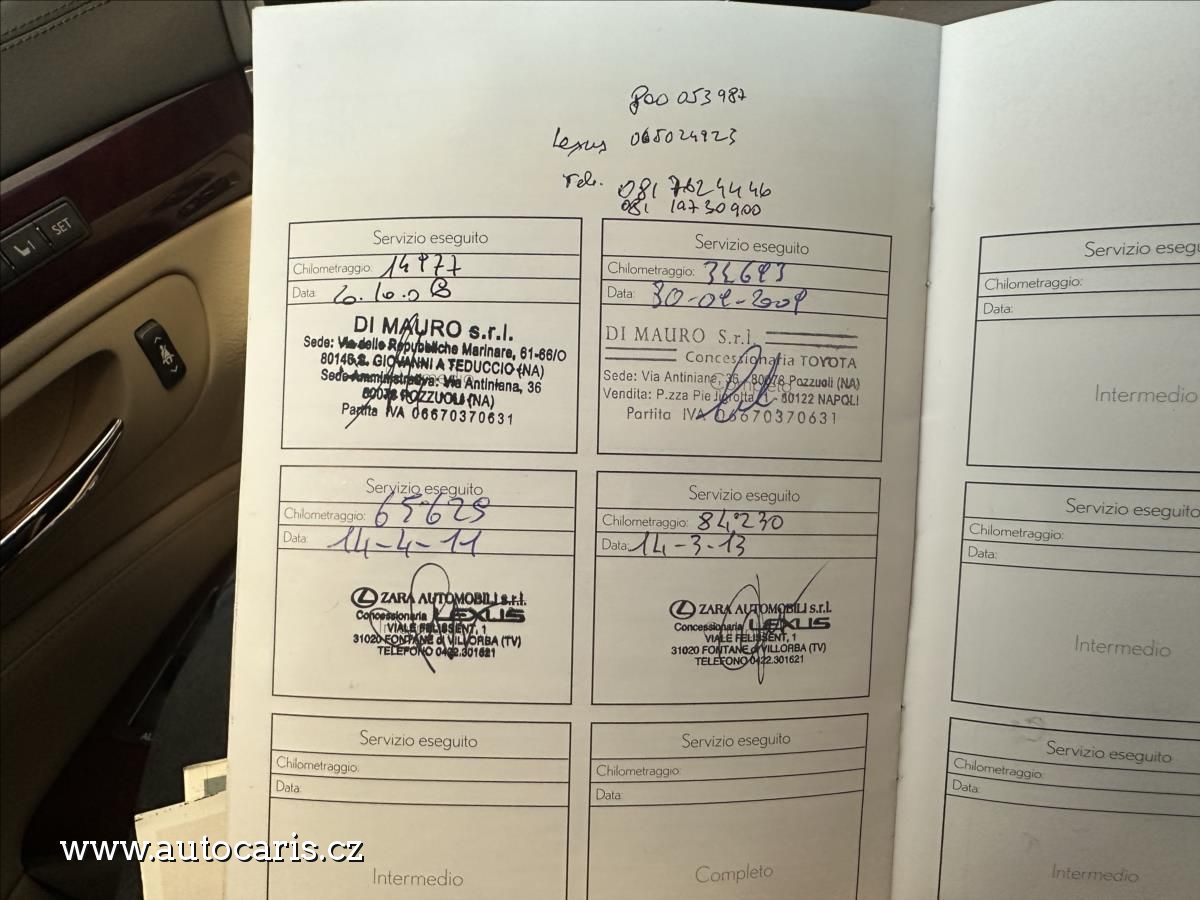 800 053987
Lexus 065024923
Tel. 081 7624446
081 19730900
SET
Servizio eseguito
Chilometraggio: 14977
Data: 20.10.08
DI MAURO s.r.l.
Sede: Via delle Repubbliche Marinare, 61-66/O
80146 S. GIOVANNI A TEDUCCIO (NA)
Sede Amministrativa: Via Antiniana, 36
80078 POZZUOLI (NA)
Partita IVA 06670370631
Servizio eseguito
Chilometraggio:
Data:
DI MAURO S.r.l.
Concessionaria TOYOTA
Sede: Via Antiniana, 36 - 80078 Pozzuoli (NA)
Vendita: P.zza Pie - 80122 NAPOLI
Partita IVA 06670370631
Completo
Servizio eseguito
Chilometraggio: 65629
Data: 14-4-11
ZARA AUTOMOBILI s.r.l.
Concessionaria LEXUS
VIALE FELISSENT, 1
31020 FONTANE di VILLORBA (TV)
TELEFONO 0422.301621
Servizio eseguito
Chilometraggio: 84.230
Data: 14-3-13
ZARA AUTOMOBILI s.r.l.
Concessionaria LEXUS
VIALE FELISSENT, 1
31020 FONTANE di VILLORBA (TV)
TELEFONO 0422.301621
Servizio eseguito
Chilometraggio:
Data:
Intermedio
Servizio eseguito
Chilometraggio:
Data:
Completo
Servizio esegu
Chilometraggio:
Data:
Intermedio
Servizio eseguito
Chilometraggio:
Data:
Intermedio
Servizio eseguito
Chilometraggio:
Data:
Intermedio
www.autocaris.cz